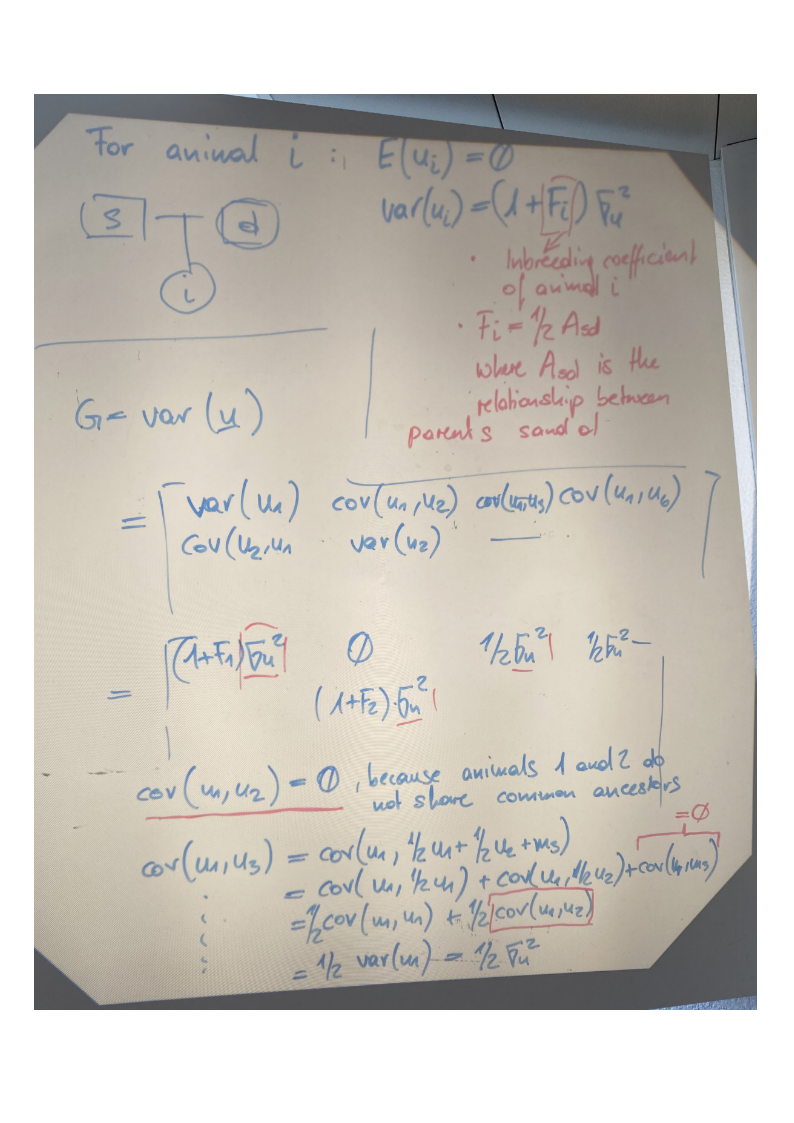 For animal i : E(ui) = Ø
var(ui) = (1 + Fi) σu²
S d
i
· Inbreeding coefficient
of animal i
· Fi = 1/2 Asd
where Asd is the
relationship between
parents s and d
G = var(u)
= [ var(u1) cov(u1,u2) cov(u1,u3) cov(u1,u6) ]
cov(u2,u1 var(u2) —
= (1+F1)σu² Ø 1/2σu² 1/2σu² —
(1+F2)·σu²
cov(u1,u2) = Ø, because animals 1 and 2 do
not share common ancestors
= Ø
cov(u1,u3) = cov(u1, 1/2u1 + 1/2u2 + m3)
= cov(u1, 1/2u1) + cov(u1, 1/2u2) + cov(u1,m3)
= 1/2 cov(u1,u1) + 1/2 cov(u1,u2)
= 1/2 var(u1) = 1/2 σu²